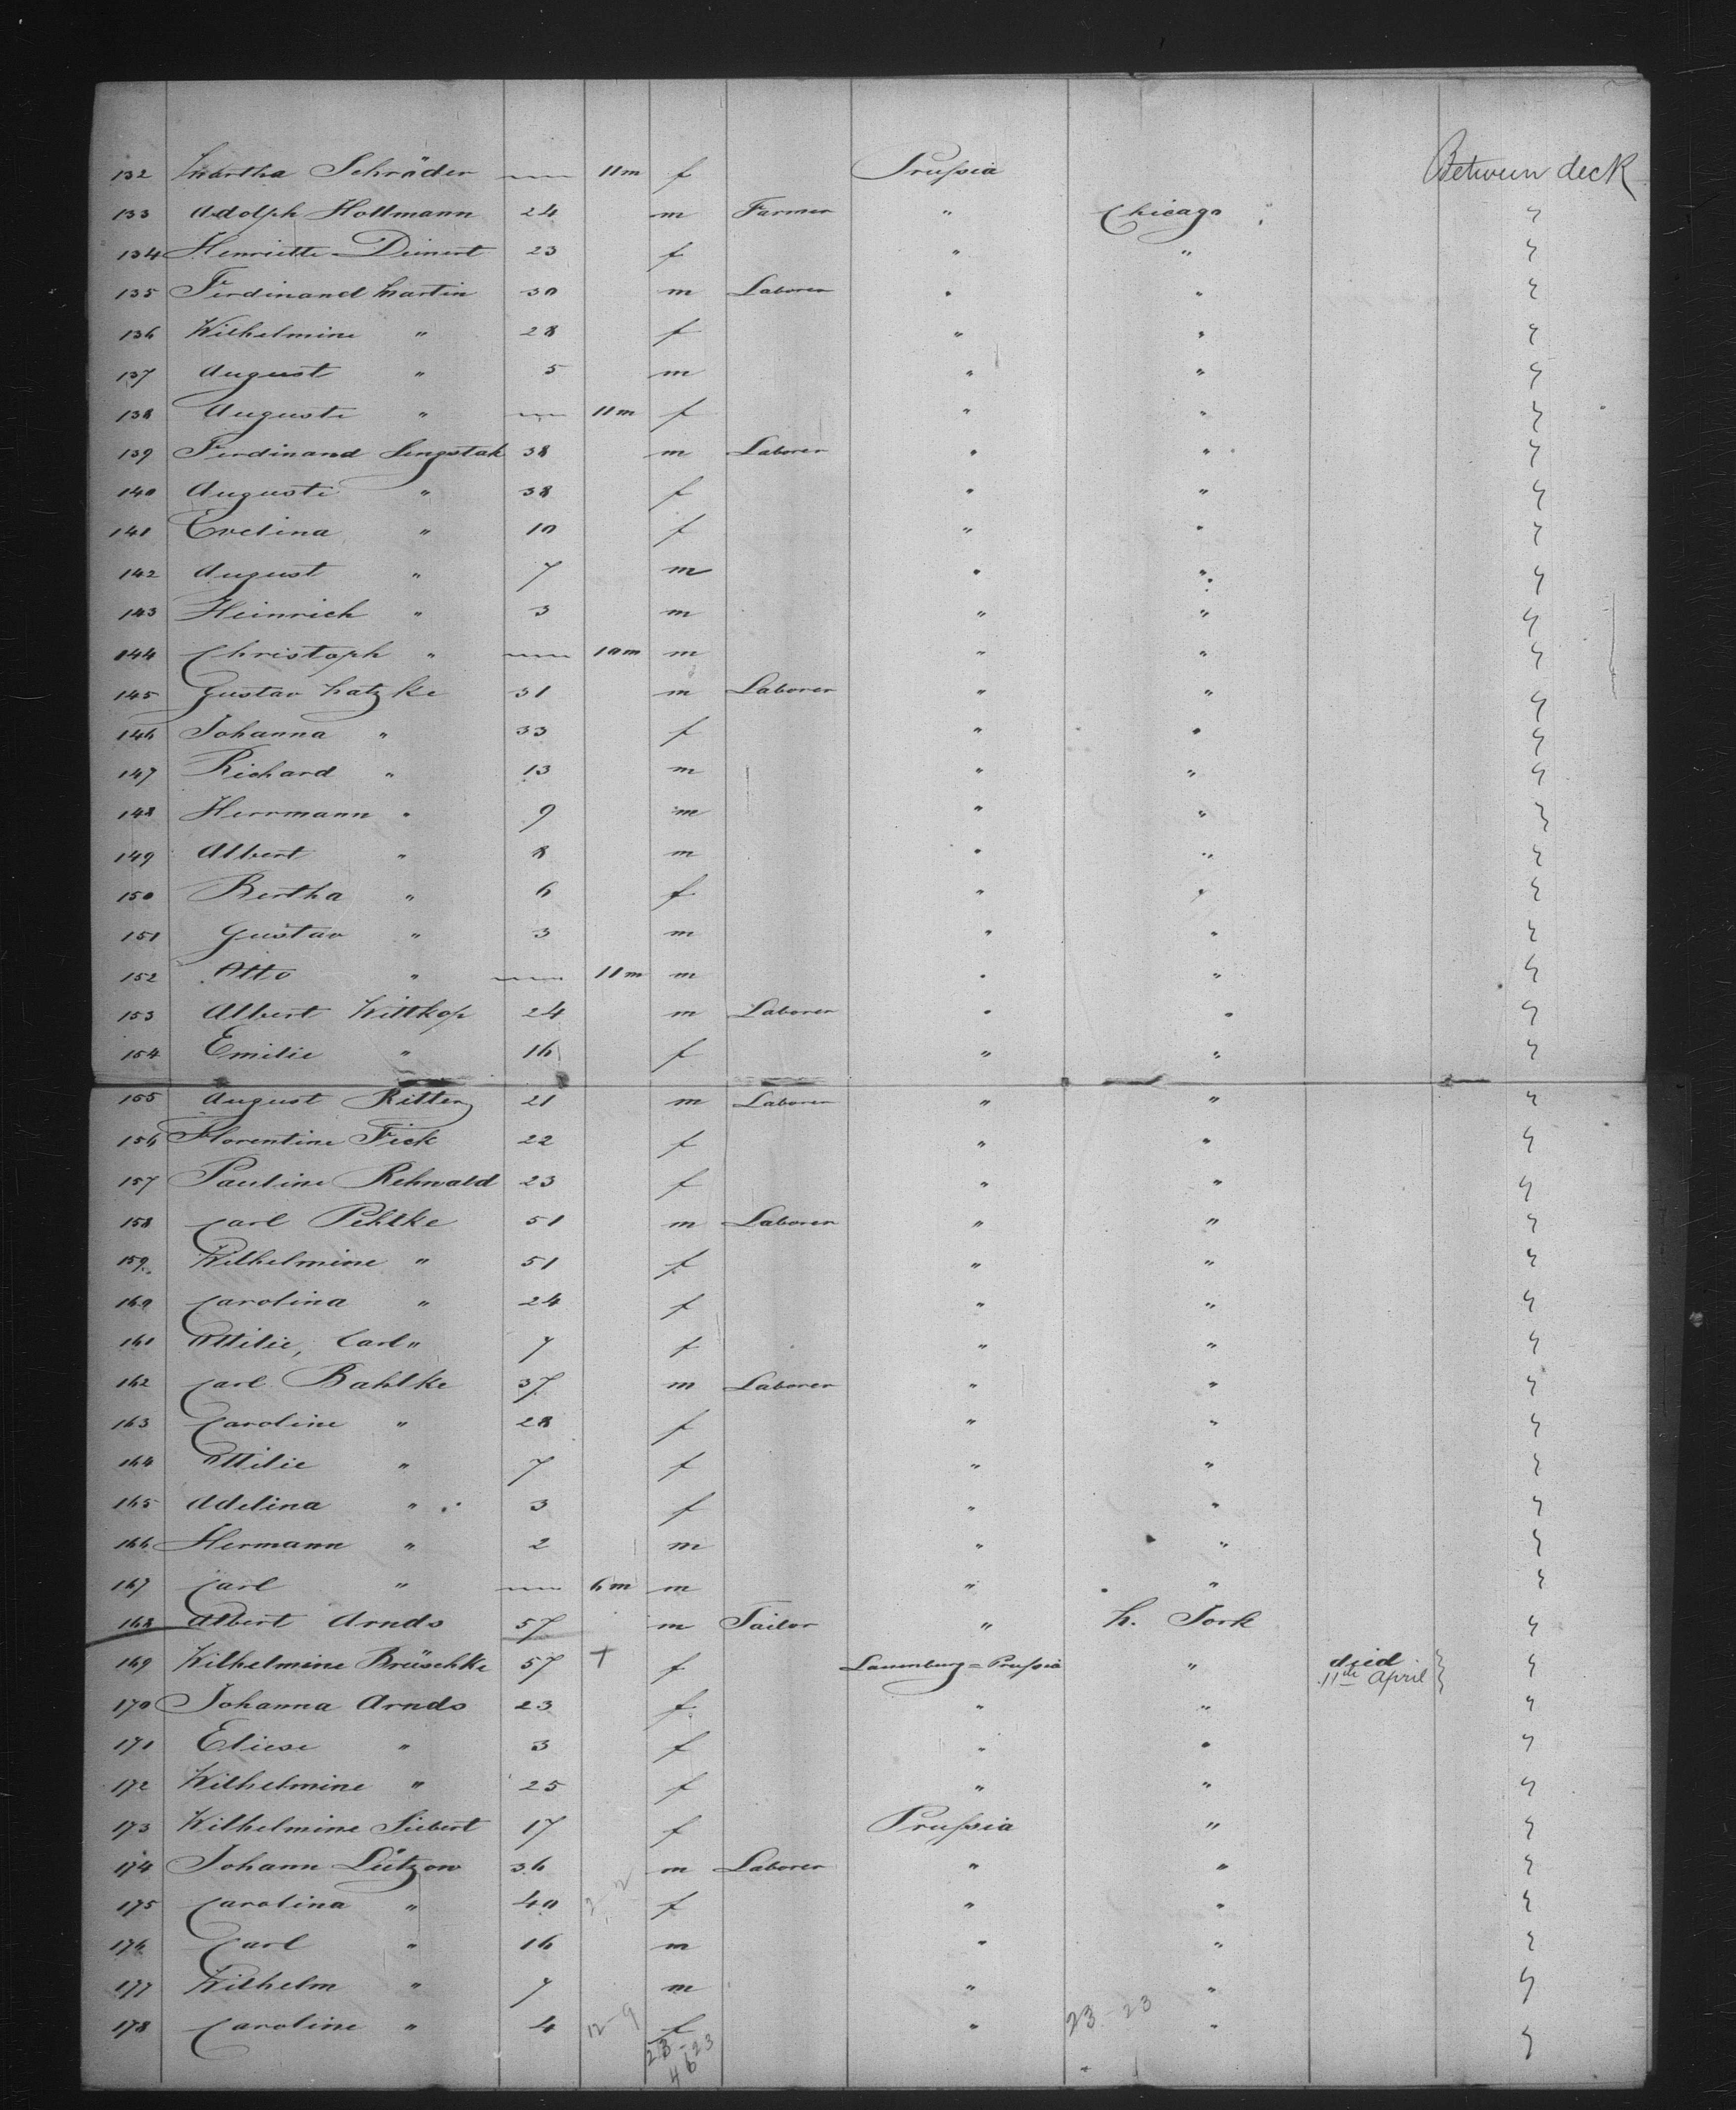 132 Martha Schröder — 11m f Prußia Between deck
133 Adolph Hollmann 24 m Farmer " Chicago "
134 Henriette Deinert 23 f " " "
135 Ferdinand Martin 30 m Laborer " " "
136 Wilhelmine " 28 f " " "
137 August " 5 m " " "
138 Auguste " — 11m f " " "
139 Ferdinand Lengstak 38 m Laborer " " "
140 Auguste " 38 f " " "
141 Evelina " 10 f " " "
142 August " 7 m " " "
143 Heinrich " 3 m " " "
144 Christoph " — 10m m " " "
145 Gustav Natzke 31 m Laborer " " "
146 Johanna " 33 f " " "
147 Richard " 13 m " " "
148 Herrmann " 9 m " " "
149 Albert " 8 m " " "
150 Bertha " 6 f " " "
151 Gustav " 3 m " " "
152 Otto " — 11m m " " "
153 Albert Wittkop 24 m Laborer " " "
154 Emilie " 16 f " " "
155 August Ritter 21 m Laborer " " "
156 Florentine Fick 22 f " " "
157 Pauline Rehwald 23 f " " "
158 Carl Pehlke 51 m Laborer " " "
159 Wilhelmine " 51 f " " "
160 Carolina " 24 f " " "
161 Ottilie, Carl " 7 f " " "
162 Carl Bahlke 37 m Laborer " " "
163 Caroline " 28 f " " "
164 Ottilie " 7 f " " "
165 Adelina " 3 f " " "
166 Hermann " 2 m " " "
167 Carl " — 6m m " " "
168 Albert Arnds 57 m Tailor " N. York "
169 Wilhelmine Brüschke 57 + f Lauenburg=Prußia " died 11th April "
170 Johanna Arnds 23 f " " "
171 Eliese " 3 f " " "
172 Wilhelmine " 25 f " " "
173 Wilhelmine Siebert 17 f Prußia " "
174 Johann Lützow 36 m Laborer " " "
175 Carolina " 40 2-2 f " " "
176 Carl " 16 m " " "
177 Wilhelm " 7 m " " "
178 Caroline " 4 12-9 f " 23-23 " "
23-23
46